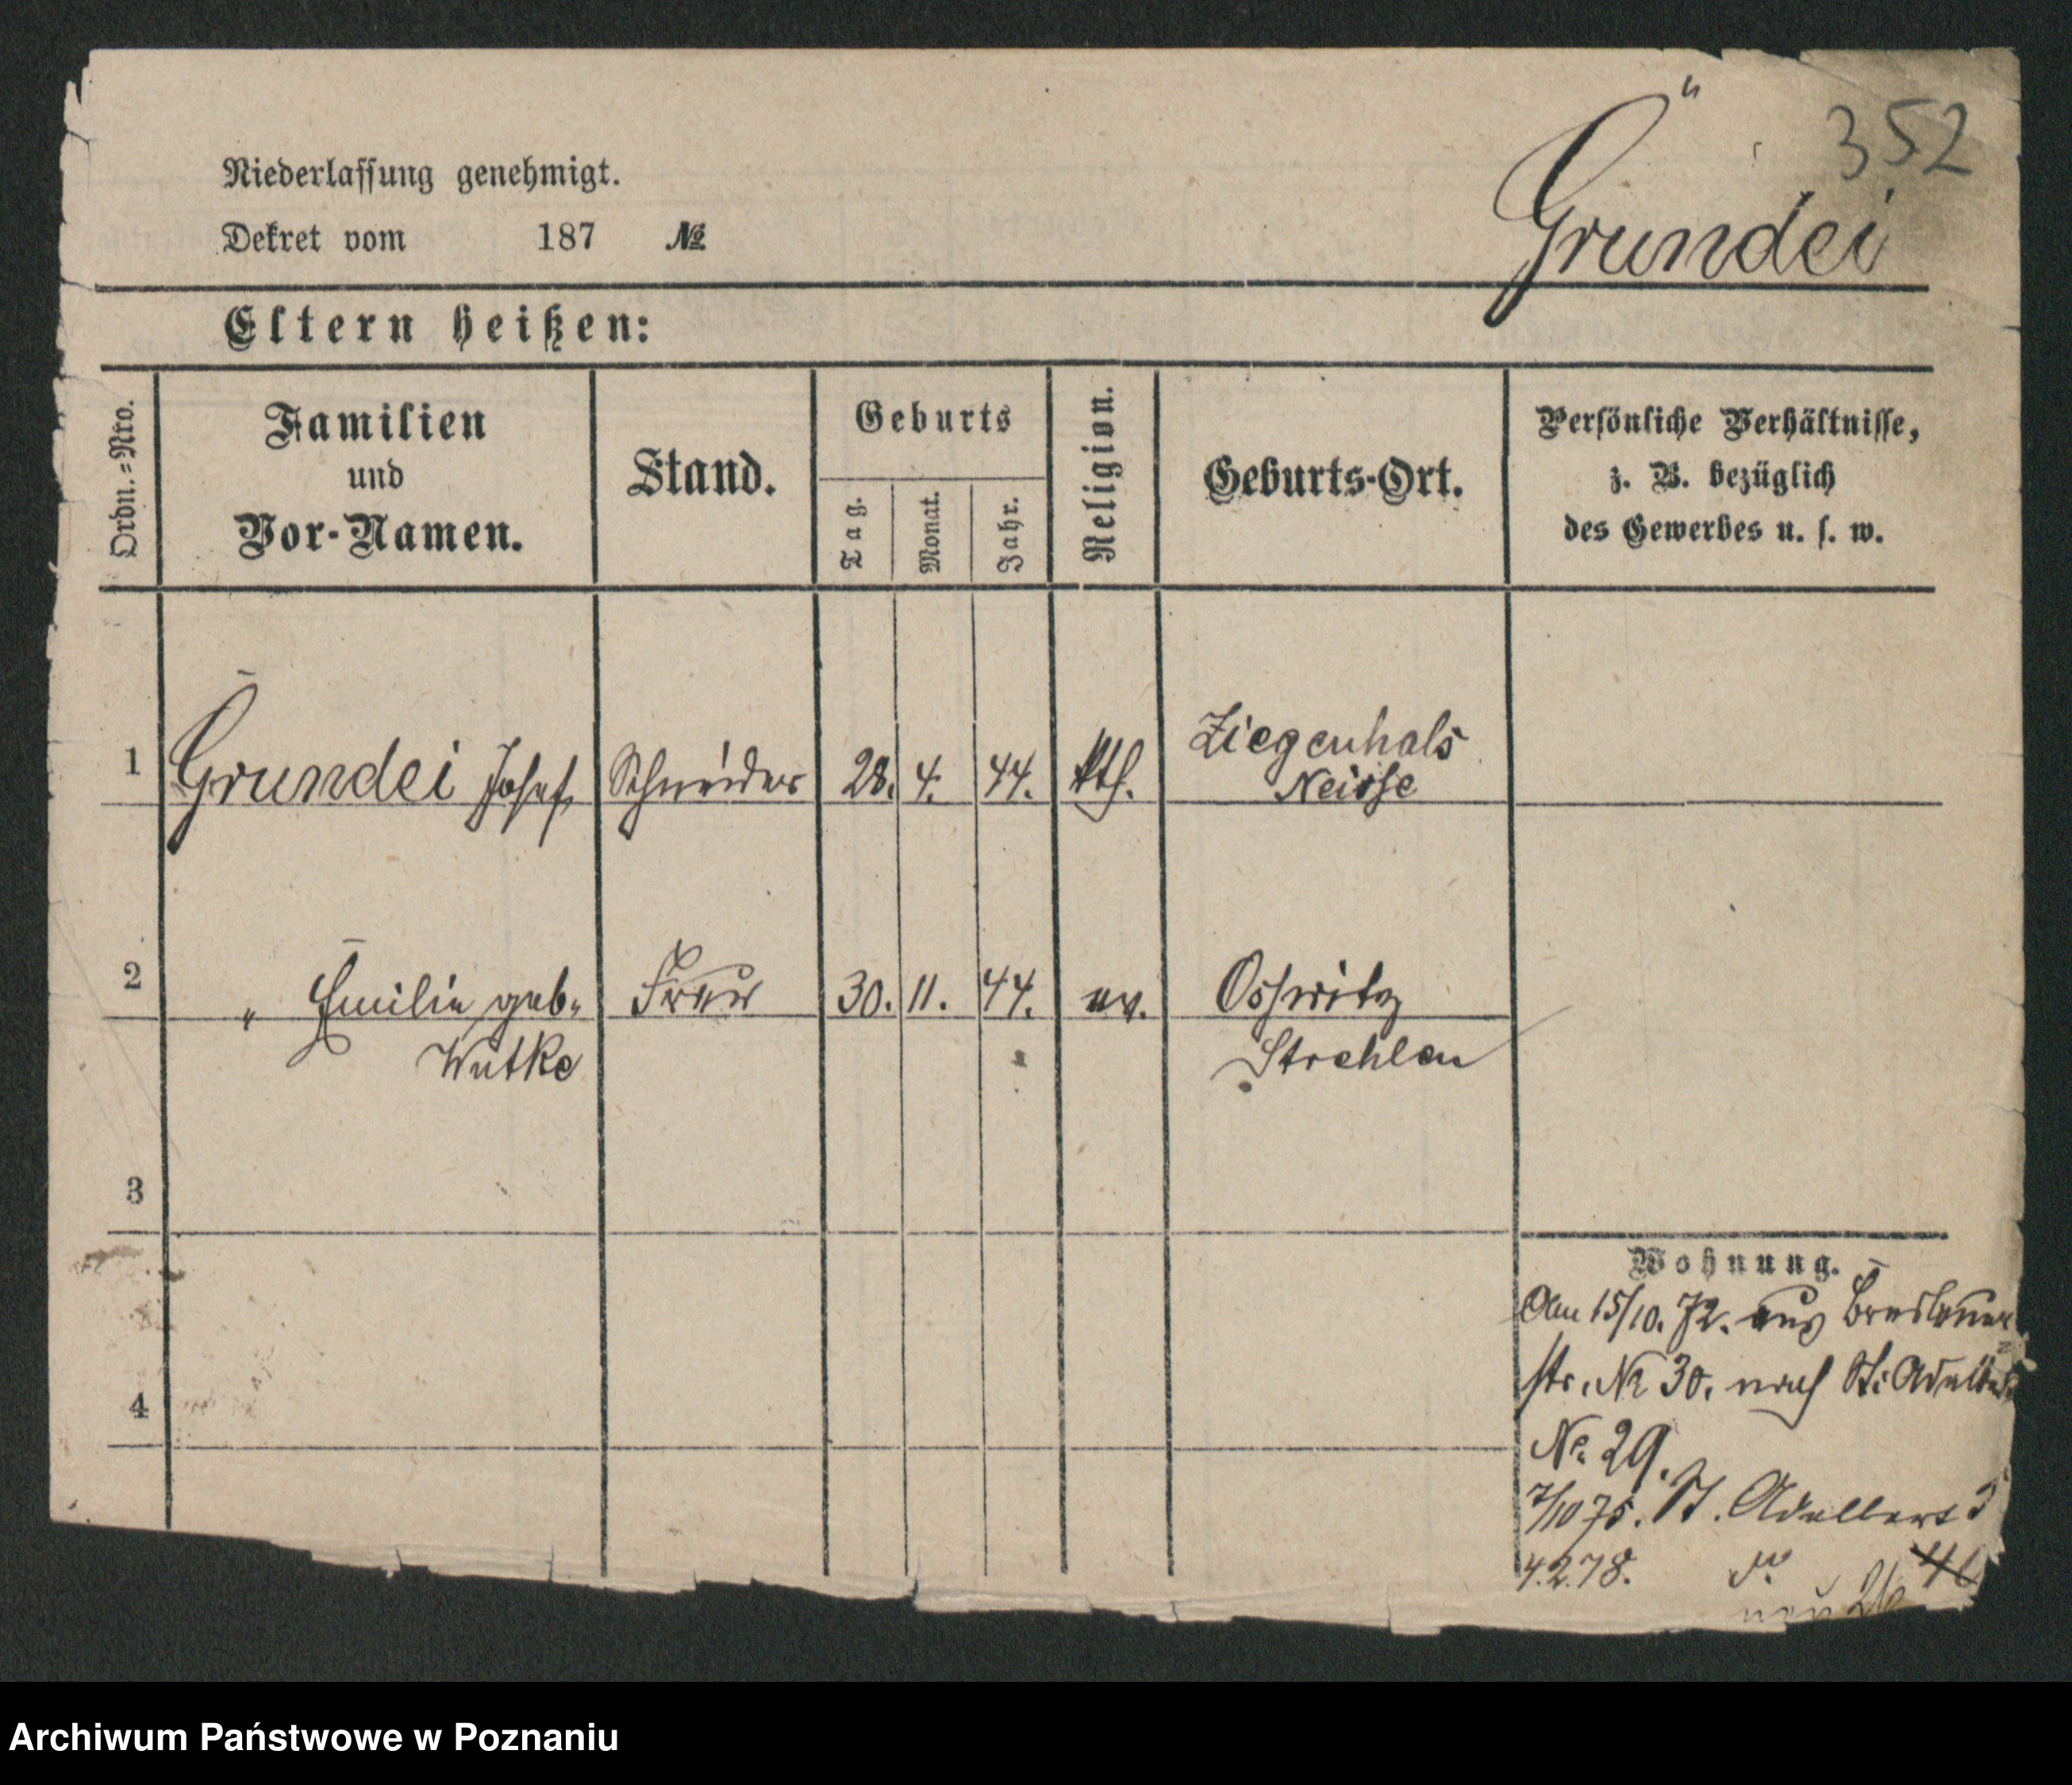 352
Grundei
Niederlassung genehmigt.
Dekret vom 187 №
Eltern heißen:
Ordn.=Nro.
Familien
und
Vor-Namen.
Stand.
Geburts
Tag.
Monat.
Jahr.
Religion.
Geburts-Ort.
Persönliche Verhältnisse,
z. B. bezüglich
des Gewerbes u. s. w.
1 Grundei Josef Schneider 28. 4. 44. kth. Ziegenhals
Neisse
2 " Emilie geb. Frau 30. 11. 44. ev.
Wutke Strehlen
3
Wohnung.
Am 15/10. 72. aus Breslauer
str. № 30. nach St. Adalbert
4
No. 29.
7/10 75. St. Adalbert
4.2.78. do
neu 26
Archiwum Państwowe w Poznaniu